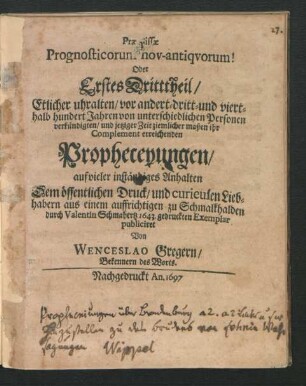 Præmissæ
Prognosticorum nov-antiqvorum!
Oder
Erstes Dritttheil/
Etlicher uhralten/ vor andert-dritt-und viert-
halb hundert Jahren von unterschiedlichen Personen
verkündigten/ und jetziger Zeit ziemlicher maßen ihr
Complement erreichenden
Propheceyungen/
auf vieler inständiges Anhalten
Dem öffentlichen Druck/ und curieusen Lieb-
habern aus einem auffrichtigen zu Schmalkhalden
durch Valentin Schmahertz 1643 gedruckten Exemplar
publiciret
Von
WENCESLAO Gregern/
Bekennern des Worts.
Nachgedruckt An. 1697
Prophezeiungen über Brandenburg
zu dem